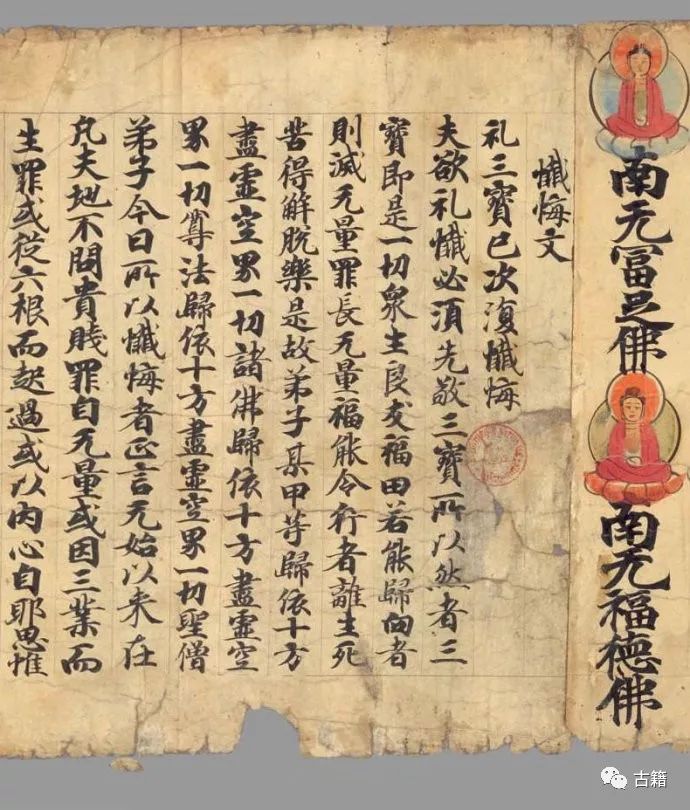 南无冨足佛
南无福德佛
懺悔文
礼三寶已次復懺悔
夫欲礼懺必須先敬三寶所以然者三
寶即是一切衆生良友福田若能歸向者
則滅无量罪長无量福能令行者離生死
苦得解脫樂是故弟子某甲等歸依十方
盡虛空界一切諸佛歸依十方盡虛空
界一切尊法歸依十方盡虛空界一切聖僧
弟子今日所以懺悔者正言无始以来在
凡夫地不問貴賤罪自无量或因三業而
生罪或從六根而起過或以內心自耶思惟
古籍